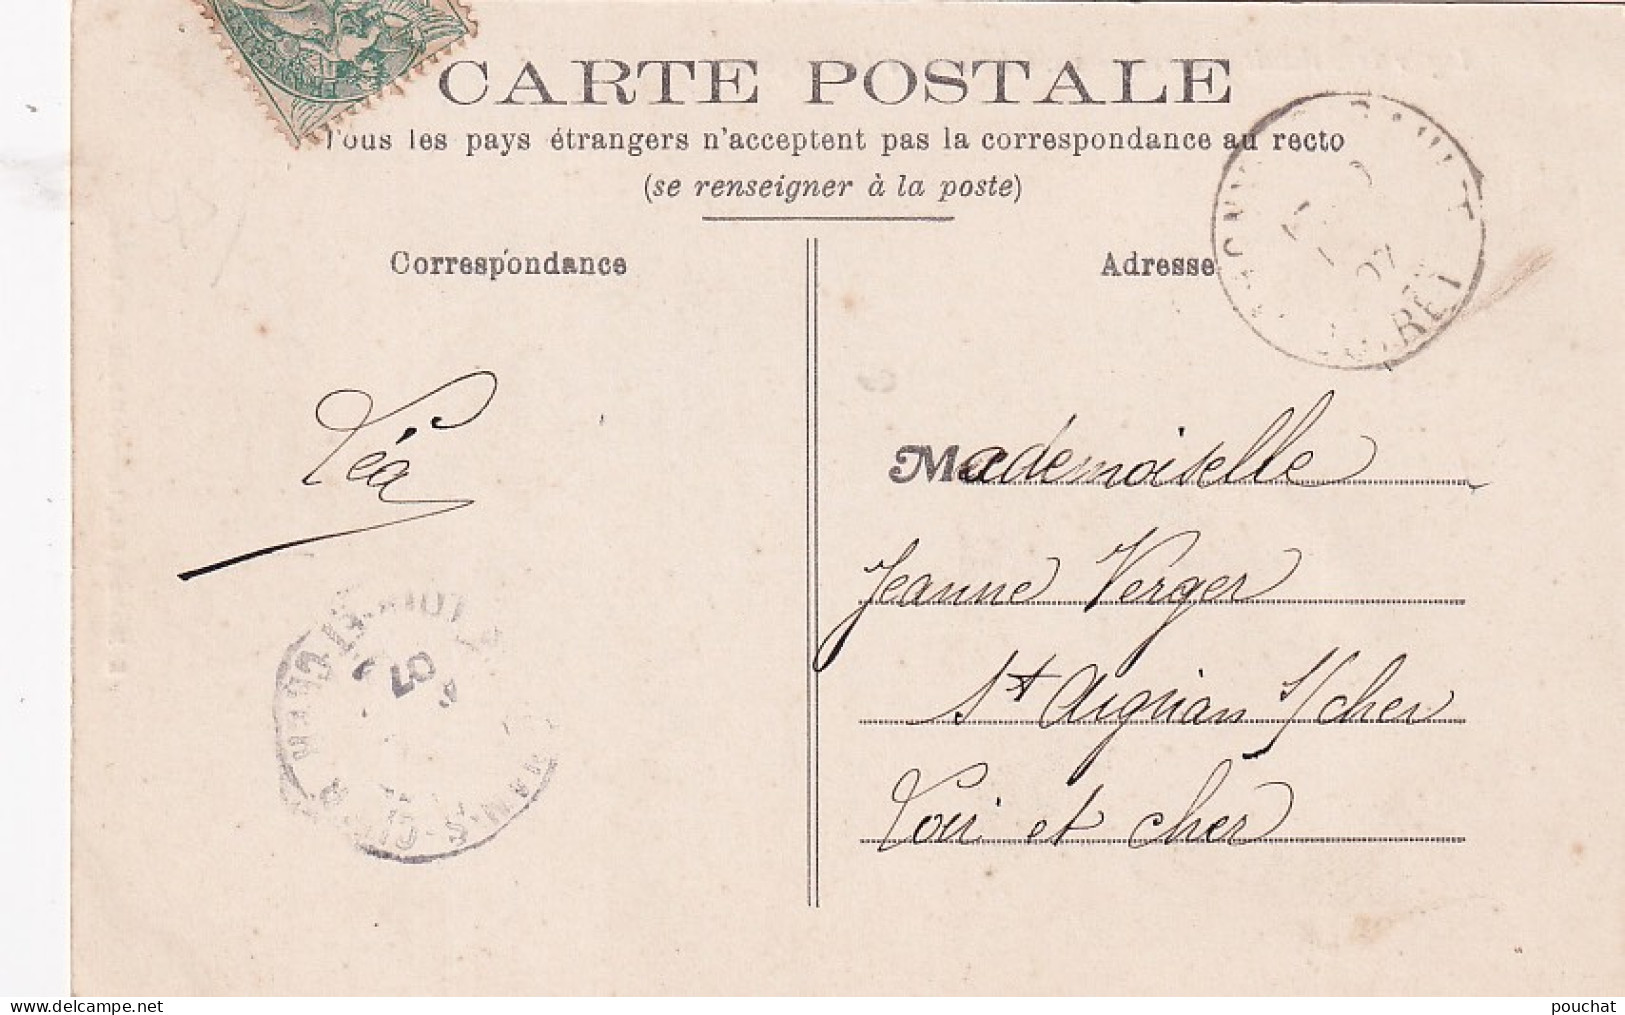 CARTE POSTALE
Tous les pays étrangers n'acceptent pas la correspondance au recto
(se renseigner à la poste)
Correspondance
Adresse
07
Léa
Mademoiselle
Jeanne Verger
St Aignan S/cher
Loir et cher
07
pouchat